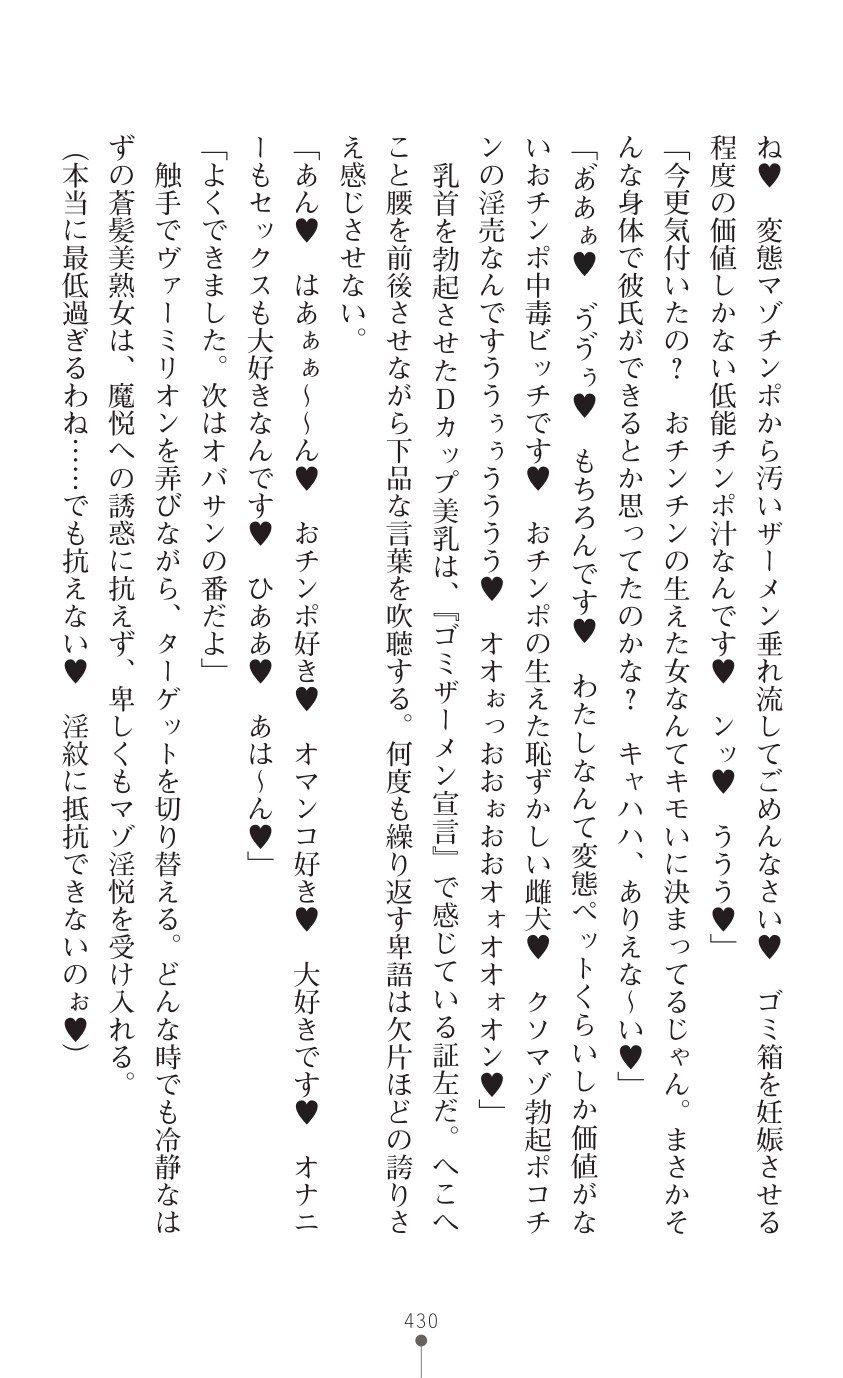 ね♥　変態マゾチンポから汚いザーメン垂れ流してごめんなさい♥　ゴミ箱を妊娠させる
程度の価値しかない低能チンポ汁なんです♥　ンッ♥　ううう♥」
「今更気付いたの？　おチンチンの生えた女なんてキモいに決まってるじゃん。まさかそ
んな身体で彼氏ができるとか思ってたのかな？　キャハハ、ありえな～い♥」
「あ゛あぁ♥　う゛う゛ぅ♥　もちろんです♥　わたしなんて変態ペットくらいしか価値がな
いおチンポ中毒ビッチです♥　おチンポの生えた恥ずかしい雌犬♥　クソマゾ勃起ポコチ
ンの淫売なんですううぅぅうううう♥　オオぉっおおぉおおオォオオォオン♥」
　乳首を勃起させたＤカップ美乳は、『ゴミザーメン宣言』で感じている証左だ。へこへ
こと腰を前後させながら下品な言葉を吹聴する。何度も繰り返す卑語は欠片ほどの誇りさ
え感じさせない。
「あん♥　はあぁぁ～～ん♥　おチンポ好き♥　オマンコ好き♥　大好きです♥　オナニ
ーもセックスも大好きなんです♥　ひああ♥　あは～ん♥」
「よくできました。次はオバサンの番だよ」
　触手でヴァーミリオンを弄びながら、ターゲットを切り替える。どんな時でも冷静なは
ずの蒼髪美熟女は、魔悦への誘惑に抗えず、卑しくもマゾ淫悦を受け入れる。
（本当に最低過ぎるわね……でも抗えない♥　淫紋に抵抗できないのぉ♥）
430